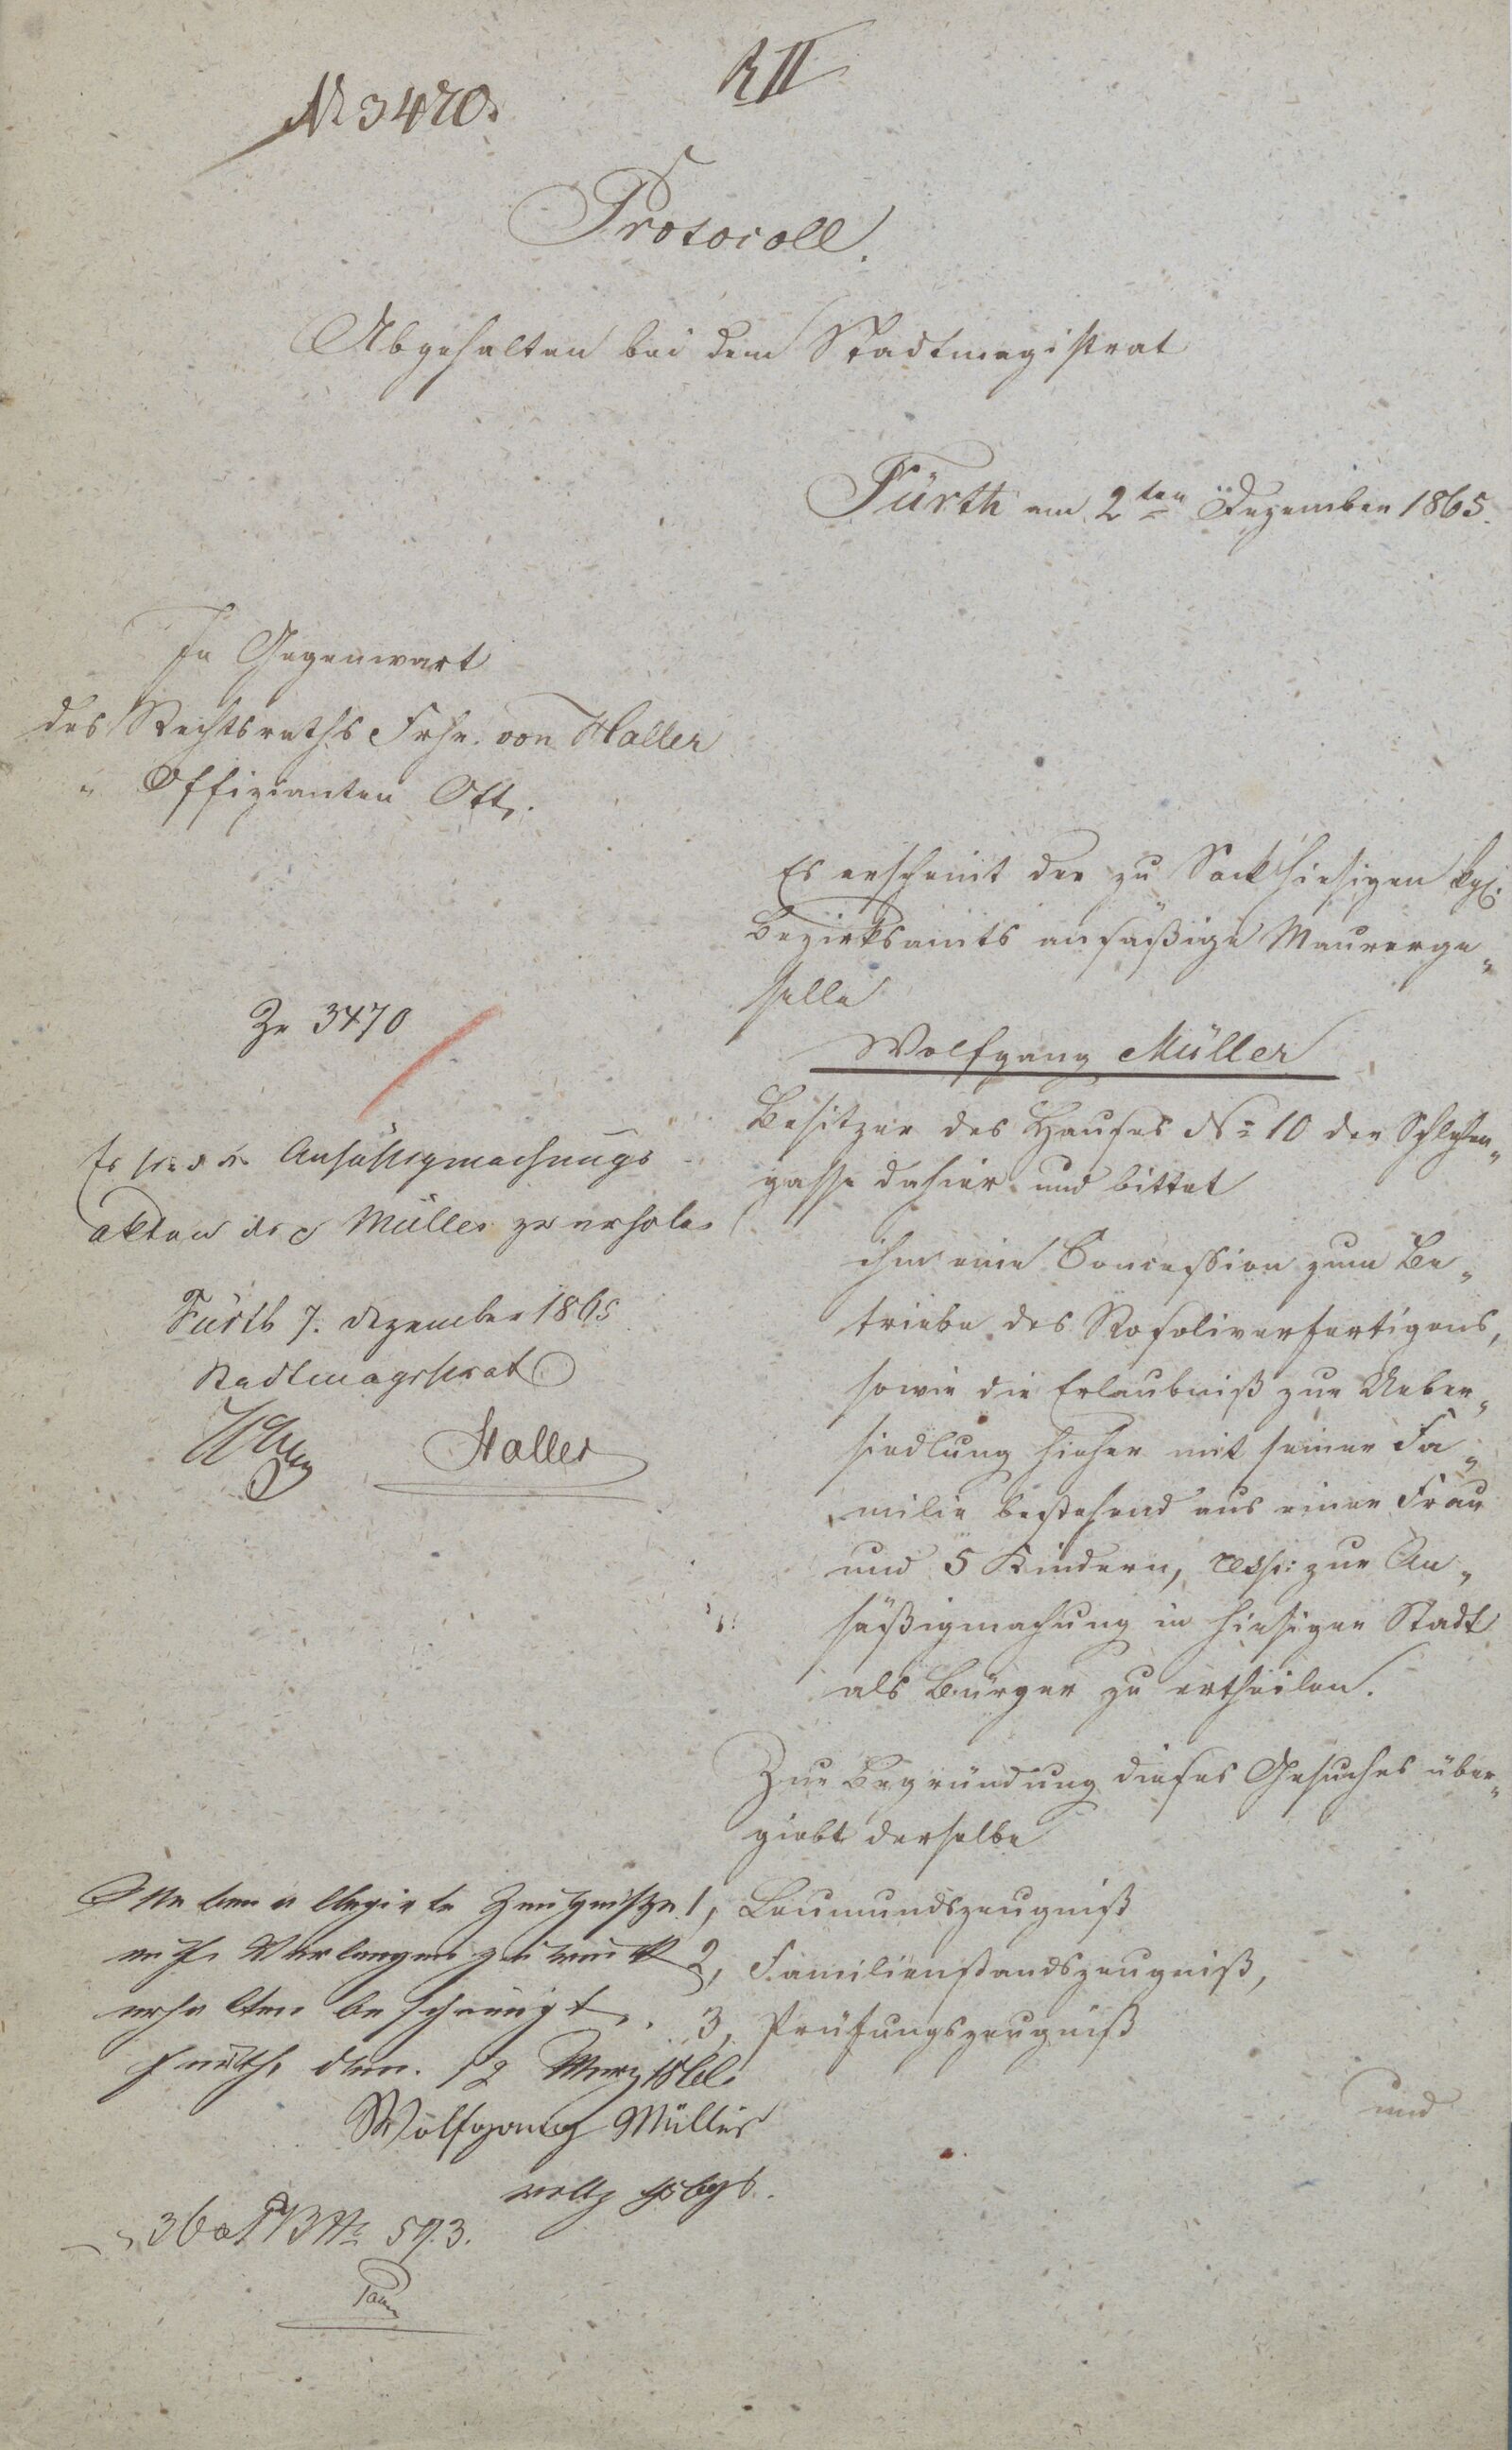 R II
№ 3470.
Protocoll.
Abgehalten bei dem Stadtmagistrat
Fürth am 2ten Dezember 1865.
In Gegenwart
des Rechtsraths Frhr. von Haller
" Offizianten Ott.
Es erscheint der zu Sack hiesigen kgl.
Bezirksamts ansäßige Maurerge„
selle
Wolfgang Müller
Besitzer des Hauses No 10 der Schlehen„
gasse dahier und bittet
ihm eine Concession zum Be„
triebe des Rosoliverfertigens,
sowie die Erlaubniß zur Ueber„
siedlung hieher mit seiner Fa„
milie bestehend aus einer Frau
und 5 Kindern, resp: zur An„
säßigmachung in hiesiger Stadt
als Bürger zu ertheilen.
Zur Begründung dieses Gesuches über„
giebt derselbe
1, Leumundszeugniß
2, Familienstandszeugniß,
3, Prüfungszeugniß
und
Zr 3470
Es sind die Ansäßigmachungs
akten des Müller zu erholen
Fürth 7. Dezember 1865
Stadtmagistrat
Haller
Zeugnisse
auf Verlangen zurück
erhalten bescheinigt.
Fürth, den 12 Merz
Wolfgang Müller
593.